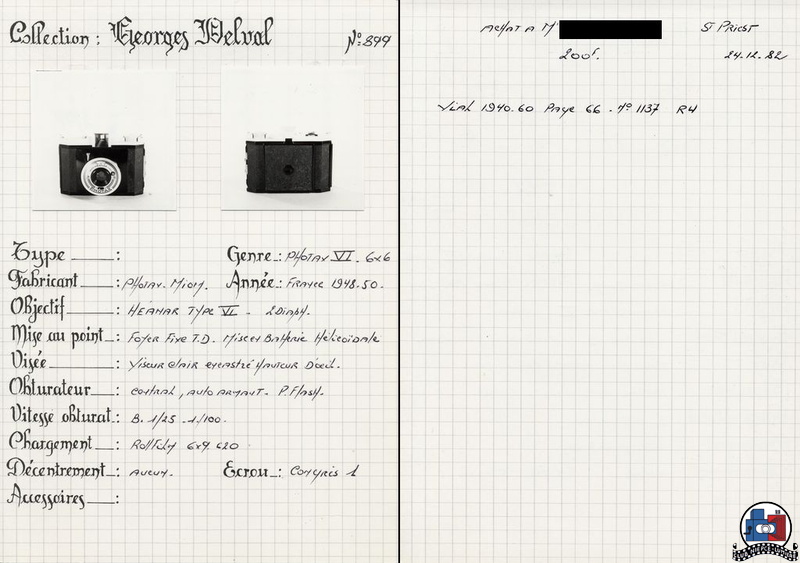 Collection : Georges Delval No 899
Type : Genre : PHOTAX VI. 6x6
Fabricant : PHOTAX. MIOM. Année : FRANCE 1948.50.
Objectif : HEXANAR TYPE VI - 2 Diaph.
Mise au point : FOYER Fixe T.D. Mise en Batterie Hélicoïdale
Visée : Viseur clair encastré Hauteur D'oeil.
Obturateur : central, auto armant. P. Flash.
Vitesse obturat : B. 1/25 - 1/100.
Chargement : Rollfilm 6x9. 620
Décentrement : AUCUN. Ecrou : Congrès 1
Accessoires :
ACHAT A Mr ST PRIEST
200f. 24.12.82
Vial 1940.60 Page 66 - No 1137 R4